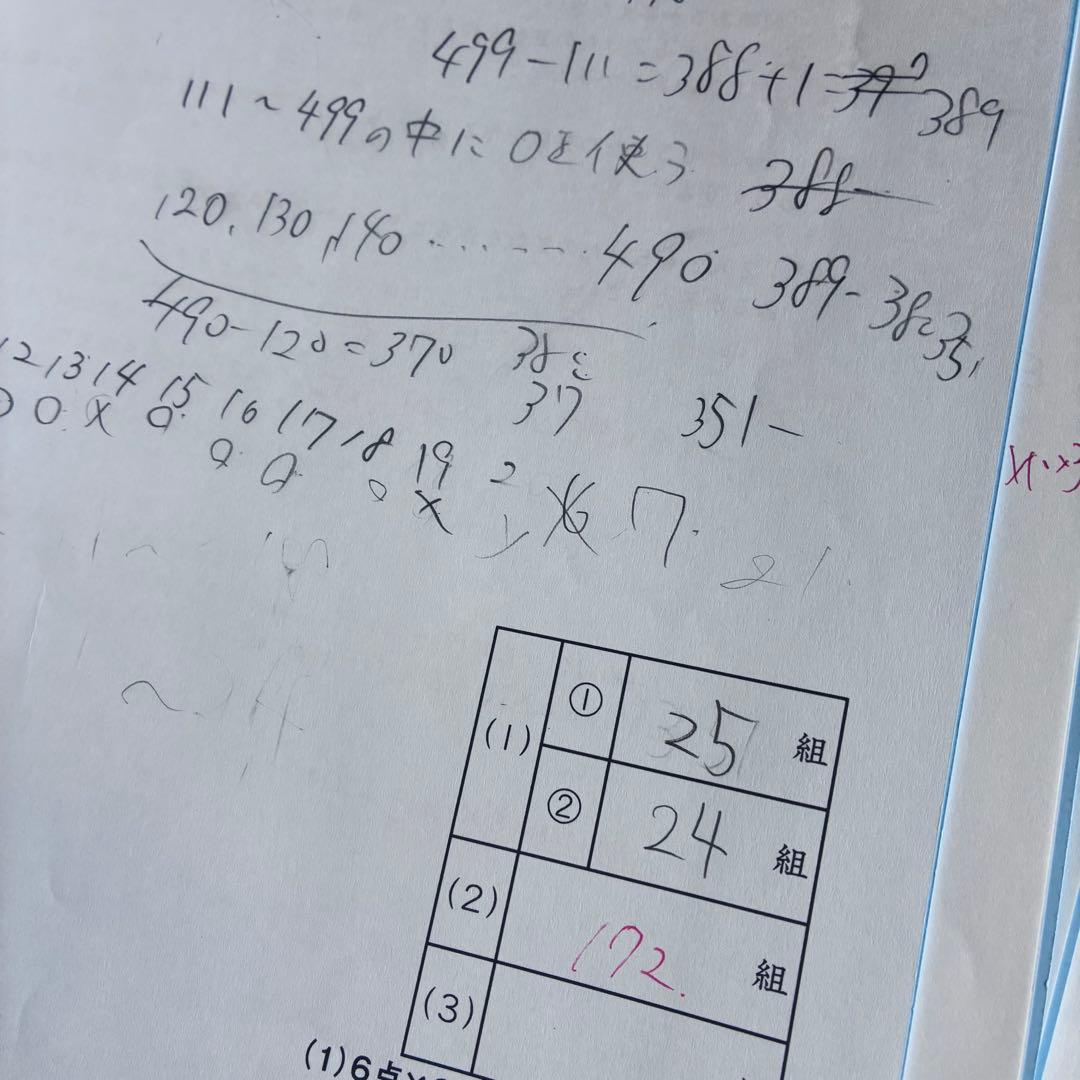 499-111=388+1=390 389
111~499の中に0を使う 388
120,130,140……490 389-38=351
490-120=370 38
37 351
12 13 14 15 16 17 18 19 2
○ ○ × ○ ○ ○ ○ × 7
21
(1) ① 25 組
② 24 組
(2) 172. 組
(3)
(1)6点×